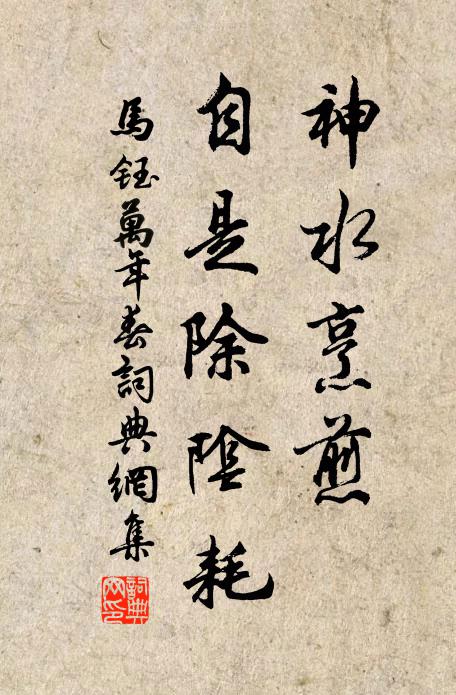 神水烹煎
自是除陰耗
馬鈺萬年春詞典網集
詞典網印